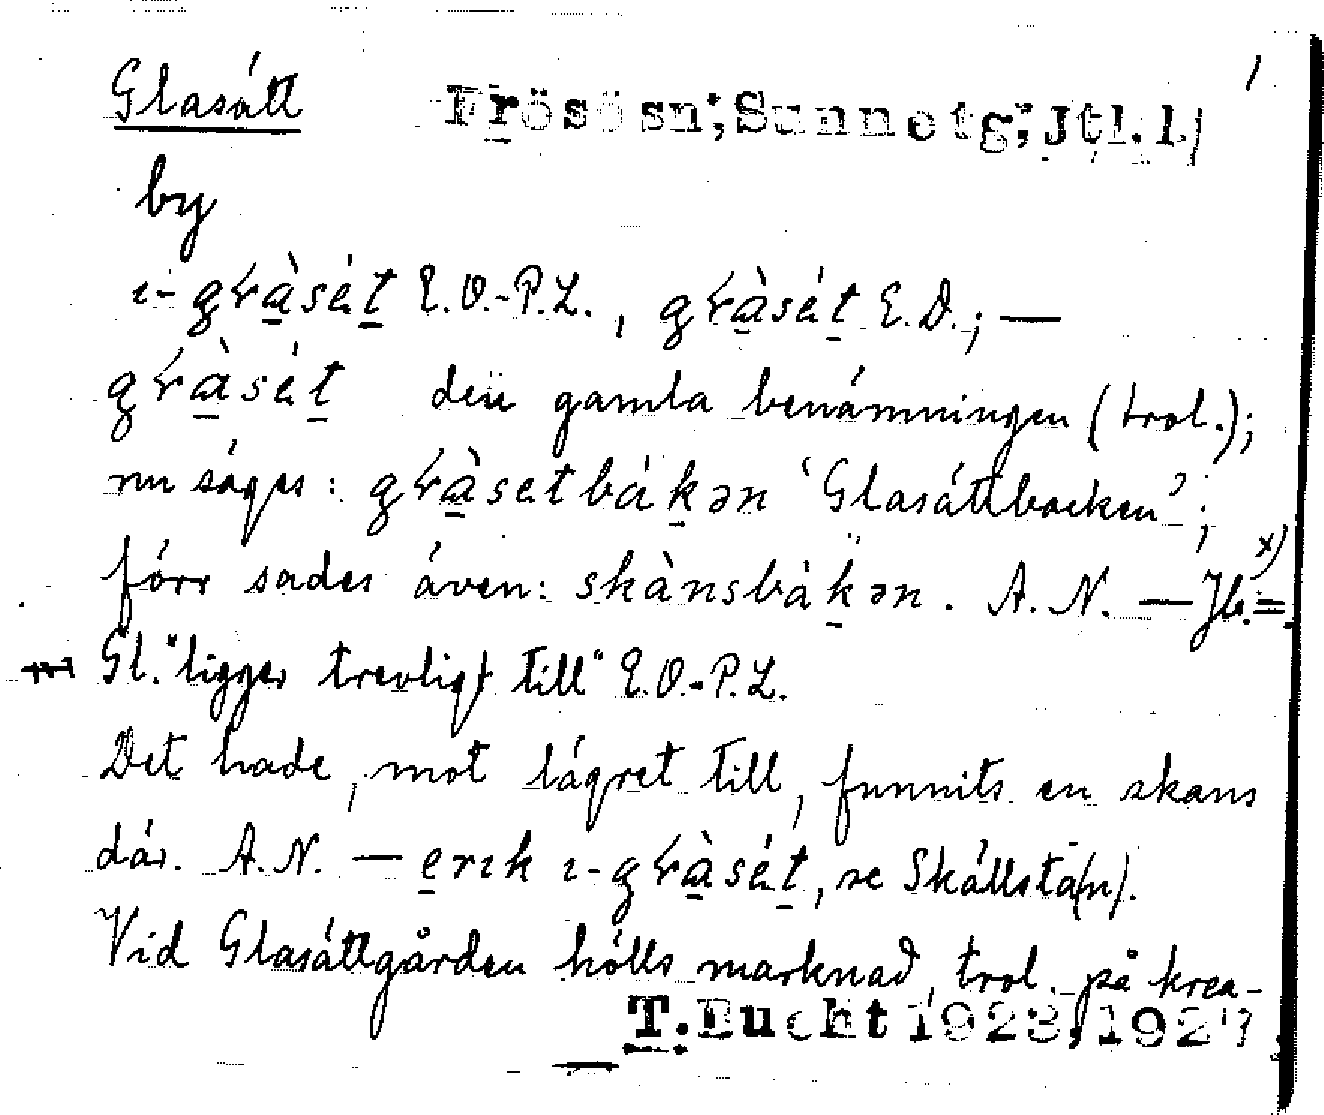 Glasätt Frösö sn; Sunne tg; Jtl. l. 1
by
ı-gɫàsèt E.O.-P.L., gɫàsèt E.D.; —
gɫàsèt den gamla benämningen (trol.);
nu säges: gɫàsetbákən 'Glasättbacken';
förr sades även: skànsbàkən. A.N. — Jb. = x)
Gl. "ligger trevligt till" E.O.-P.L.
Det hade, mot lägret till, funnits en skans
där. A.N. — erık ı-gɫàsèt, se Skällsta(n).
Vid Glasättgården hölls marknad, trol. på krea-
T. Bucht 1923, 1927